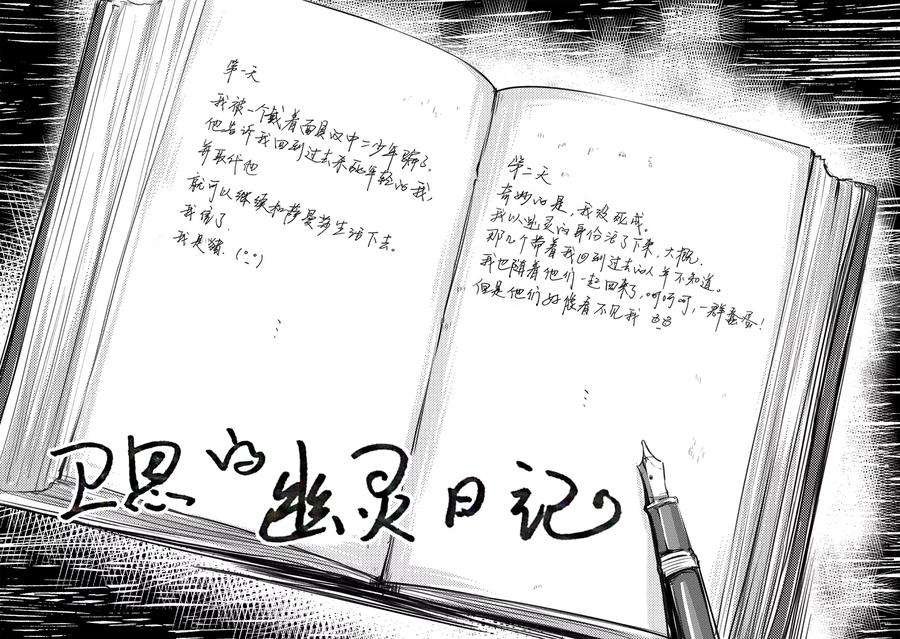 第一天
我被一个戴着面具的中二少年骗了.
他告诉我回到过去杀死年轻的我,
并取代他
就可以继续和莎曼莎生活下去。
我信了.
我是猪.
⋮
第二天
奇妙的是,我没死成。
我以幽灵的身份活了下来,大概.
那几个带着我回到过去的人并不知道。
我也随着他们一起回来了,呵呵呵,一群蠢蛋!
但是他们好像看不见我
⋮
卫思的幽灵日记